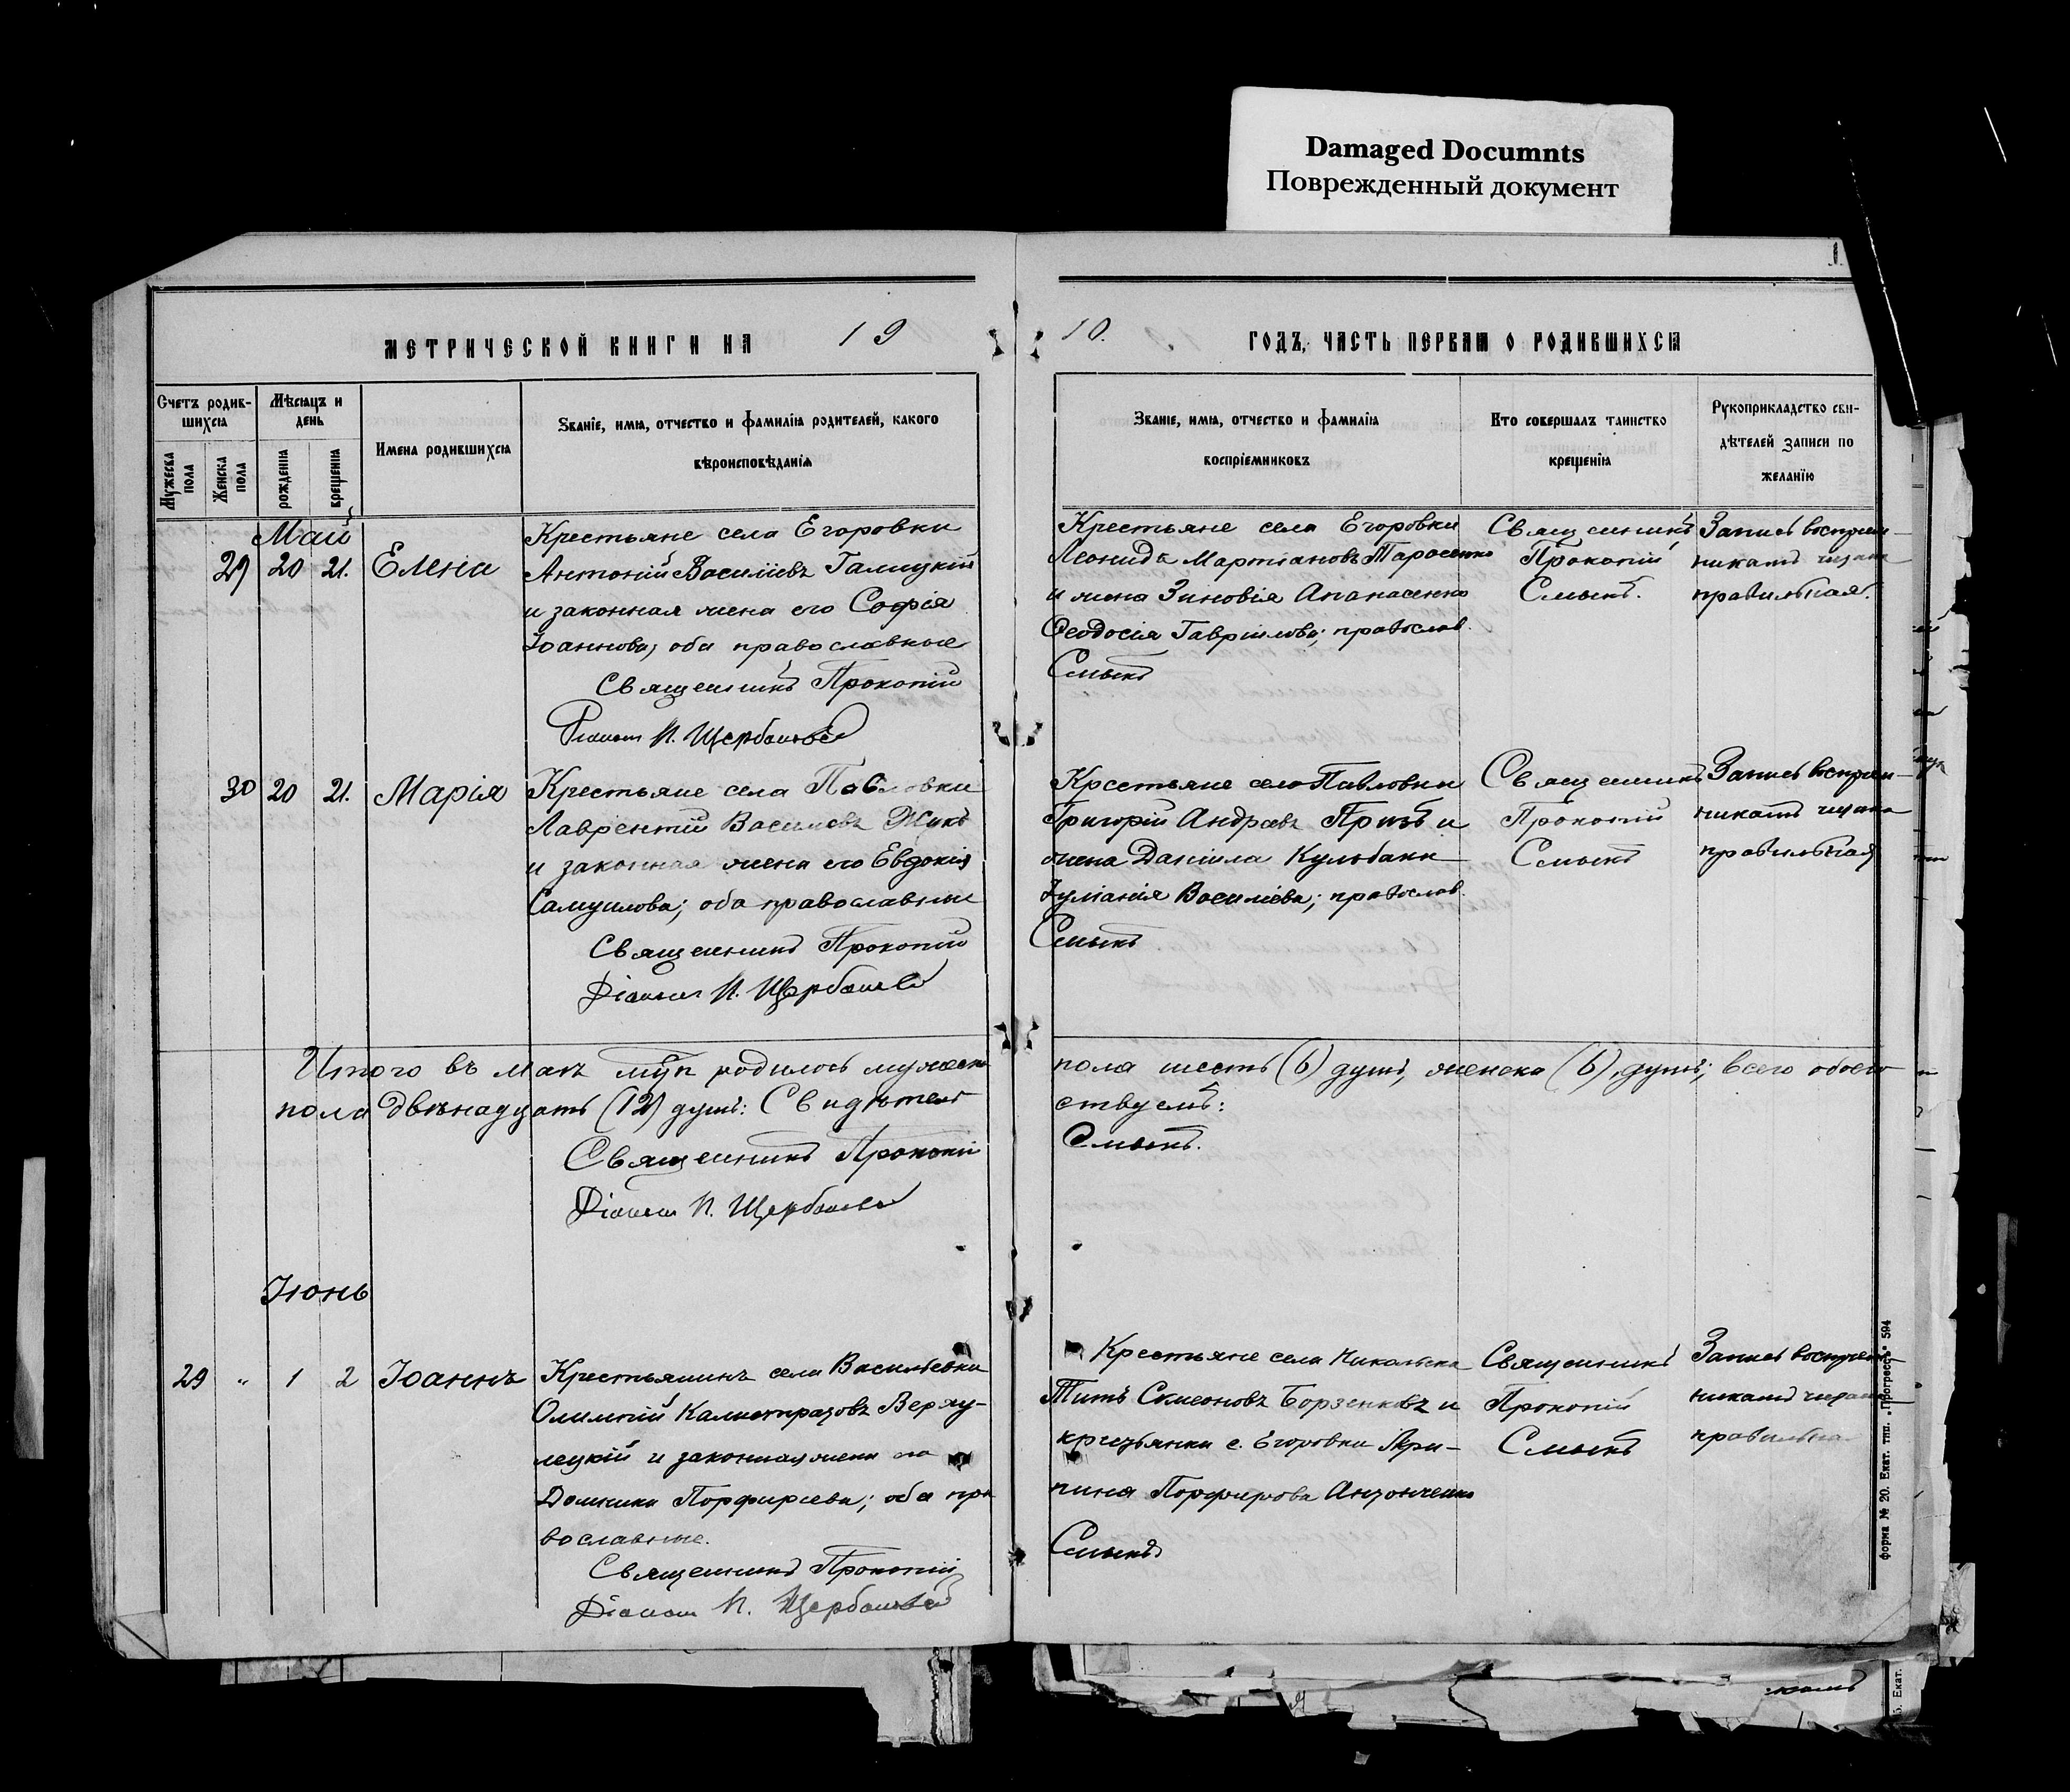 Damaged Documnts
Поврежденный документ
МЕТРИЧЕСКОЙ КНИГИ НА 19
10. ГОДЪ, ЧАСТЬ ПЕРВАЯ О РОДИВШИХСЯ
Счетъ родившихся
Мужеска пола
Женска пола
Мѣсяцъ и день
рожденія
крещенія
Имена родившихся
Званіе, имя, отчество и фамилія родителей, какого
вѣроисповѣданія
Званіе, имя, отчество и фамилія
воспріемниковъ
Кто совершалъ таинство
крещенія
Рукоприкладство сви-
дѣтелей записи по
желанію
Май
29 20 21. Елена
Крестьяне села Егоровки
Антоній Василіевъ Галицкій
и законная жена его Софія
Іоаннова; оба православные
Священникъ Прокопій
Діаконъ И. Щербаковъ
Крестьяне села Егоровки
Леонидъ Мартіановъ Тарасенко
и жена Зиновія Апанасенко
Ѳеодосія Гавріилова; православ.
Смыкъ
Священникъ
Прокопій
Смыкъ.
Запись воспріем-
никамъ читана
правильная.
30 20 21. Марія
Крестьяне села Павловки
Лаврентій Василіевъ Жукъ
и законная жена его Евдокія
Самуилова; оба православные
Священникъ Прокопій
Діаконъ И. Щербаковъ
Крестьяне села Павловки
Григорій Андреевъ и
жена Даніила Кульбаки
Іуліанія Василіева; православ.
Смыкъ
Священникъ
Прокопій
Смыкъ
Запись воспріем-
никамъ читана
правильная
Итого въ маѣ родилось мужеска
пола шесть (6) душъ, женска (6) душъ; всего обоего
пола двѣнадцать (12) душъ: Свидѣтель
ствуемъ:
Священникъ Прокопій
Смыкъ.
Діаконъ И. Щербаковъ
Іюнь
29 „ 1 2 Іоаннъ
Крестьянинъ села Васильевки
Олимпій Калистратовъ
и законная жена его
Домника Порфиріева; оба пра
вославные.
Священникъ Прокопій
Діаконъ И. Щербаковъ
Крестьяне села
Титъ Симеоновъ Борзенковъ и
крестьянка с. Егоровки Агри-
пина Порфирова Антонченко
Смыкъ
Священникъ
Прокопій
Смыкъ
Запись воспріем-
никамъ читана
правильна
форма № 20. Екат. тип. „Прогрессъ" 594